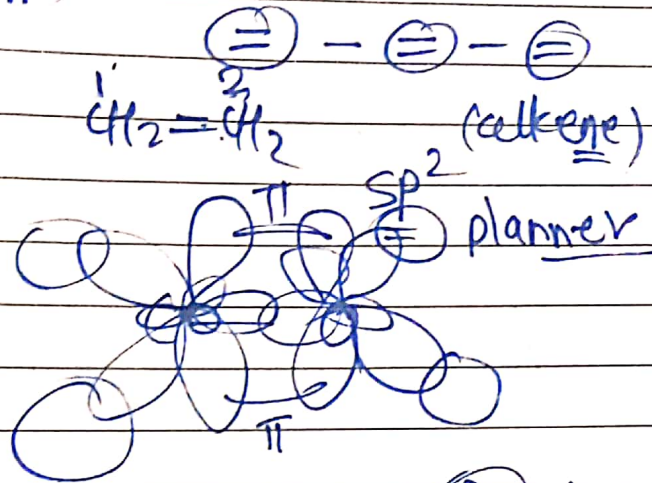 = - = - =
1 2
CH2=CH2 (alkene)
π SP² planner
π